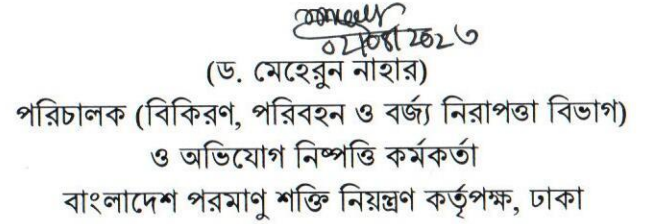 (ড. মেহেরুন নাহার)
পরিচালক (বিকিরণ, পরিবহন ও বর্জ্য নিরাপত্তা বিভাগ)
ও অভিযোগ নিষ্পত্তি কর্মকর্তা
বাংলাদেশ পরমাণু শক্তি নিয়ন্ত্রণ কর্তৃপক্ষ, ঢাকা